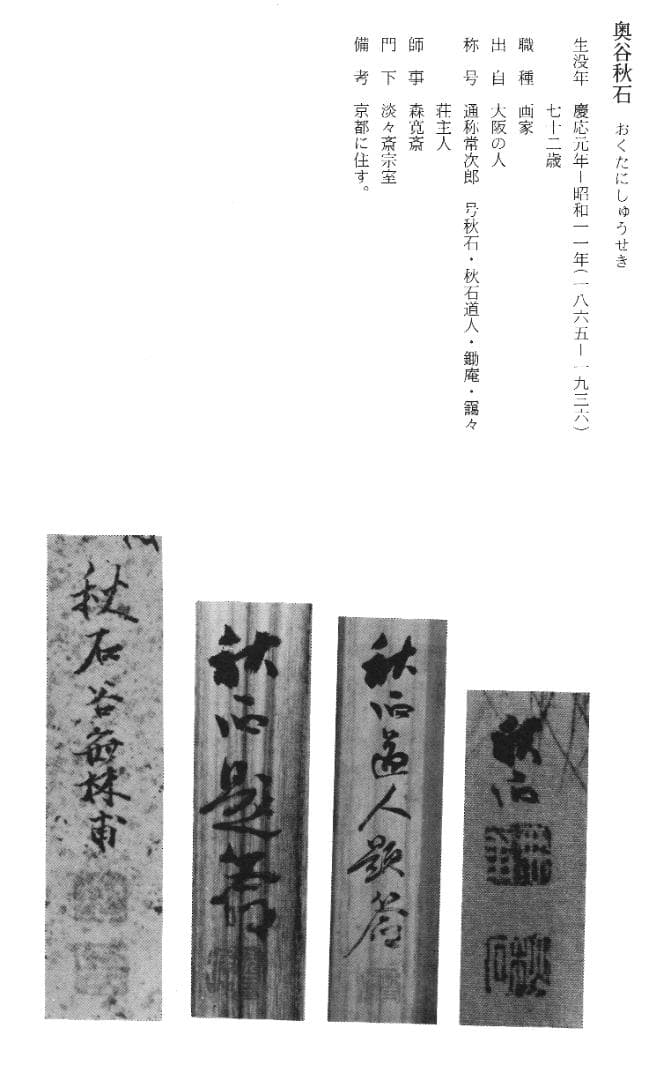 奥谷秋石　おくたにしゅうせき
生没年　慶応元年―昭和一一年(一八六五―一九三六)
七十二歳
職種　画家
出自　大阪の人
称号　通称常次郎　号秋石・秋石道人・鋤庵・靄々
荘主人
師事　森寛斎
門下　淡々斎宗室
備考　京都に住す。
秋石
秋石道人題簽
秋石題簽
秋石谷